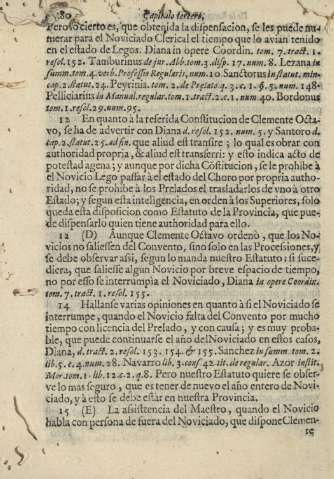 80 Capitulo tercero,
Pero lo cierto es, que obtenida la dispensacion, se les puede nu-
merar para el Noviciado Clerical el tiempo que lo avian tenido
en el estado de Legos. Diana in opere Coordin. tom. 7. tract. 1.
resol. 152. Tamburinus de jur. Abb. tom. 3. disp. 17. num. 8. Lezana in
summ. tom. 4. verb. Professio Regularis, num. 10 Sanctorus in statut. min-
cap. 2. statut. 24. Peyrinis. tom. 2. de Prelato q. 3. c. 1. §. 5. num. 148-
Pelliciarius in Manual. regular. tom. 1. tract. 2. c. 1. num 40. Bordonus
tom. 1. resol. 29. num. 95.
12 En quanto à la referida Constitucion de Clemente Octa-
vo, se ha de advertir con Diana d. resol. 152. num. 5. y Santoro d.
cap. 2. statut. 25. ad fin. que aliud est transire; lo qual es obrar con
authoridad propria, & aliud est transferri: y esto indica acto de
potestad agena; y aunque por dicha Cõstitucion, se le prohibe à
el Novicio Lego passar à el estado del Choro por propria autho-
ridad, no se prohibe à los Prelados el trasladarlos de vno à otro
Estado; y segun esta inteligencia, en orden à los Superiores, solo
queda esta disposicion como Estatuto de la Provincia, que pue-
de dispensarlo quien tiene authoridad para ello.
12 (D) Aunque Clemente Octavo ordenò, que los No-
vicios no saliessen del Convento, sino solo en las Processiones, y
se debe observar assi, segun lo manda nuestro Estatuto; si suce-
diera, que saliesse algun Novicio por breve espacio de tiempo,
no por esso se interrumpia el Noviciado, Diana in opere Coordin.
tom. 7. tract. 1. resol. 155.
14 Hallanse varias opiniones en quanto à si el Noviciado se
interrumpe, quando el Novicio falta del Convento por mucho
tiempo con licencia del Prelado, y con causa; y es muy proba-
ble, que puede continuarse el año del Noviciado en estos casos,
Diana, d. tract. 2. resol. 153. 154. & 155. Sanchez in summ. tom. 2.
lib. 5. c. 4. num. 28. Navarro lib. 3. conf. 42. tit. de regular. Azor instit.
Mor. tom. 1. lib. 12. c. 2. q. 8. Pero nuestro Estatuto quiere se obser-
ve lo mas seguro, que es tener de nuevo el año entero de Novi-
ciado, y à esto se debe estàr en nuestra Provincia.
15 (E) La assistencia del Maestro, quando el Novicio
habla con persona de fuera del Noviciado, que dispone Clemen-
te